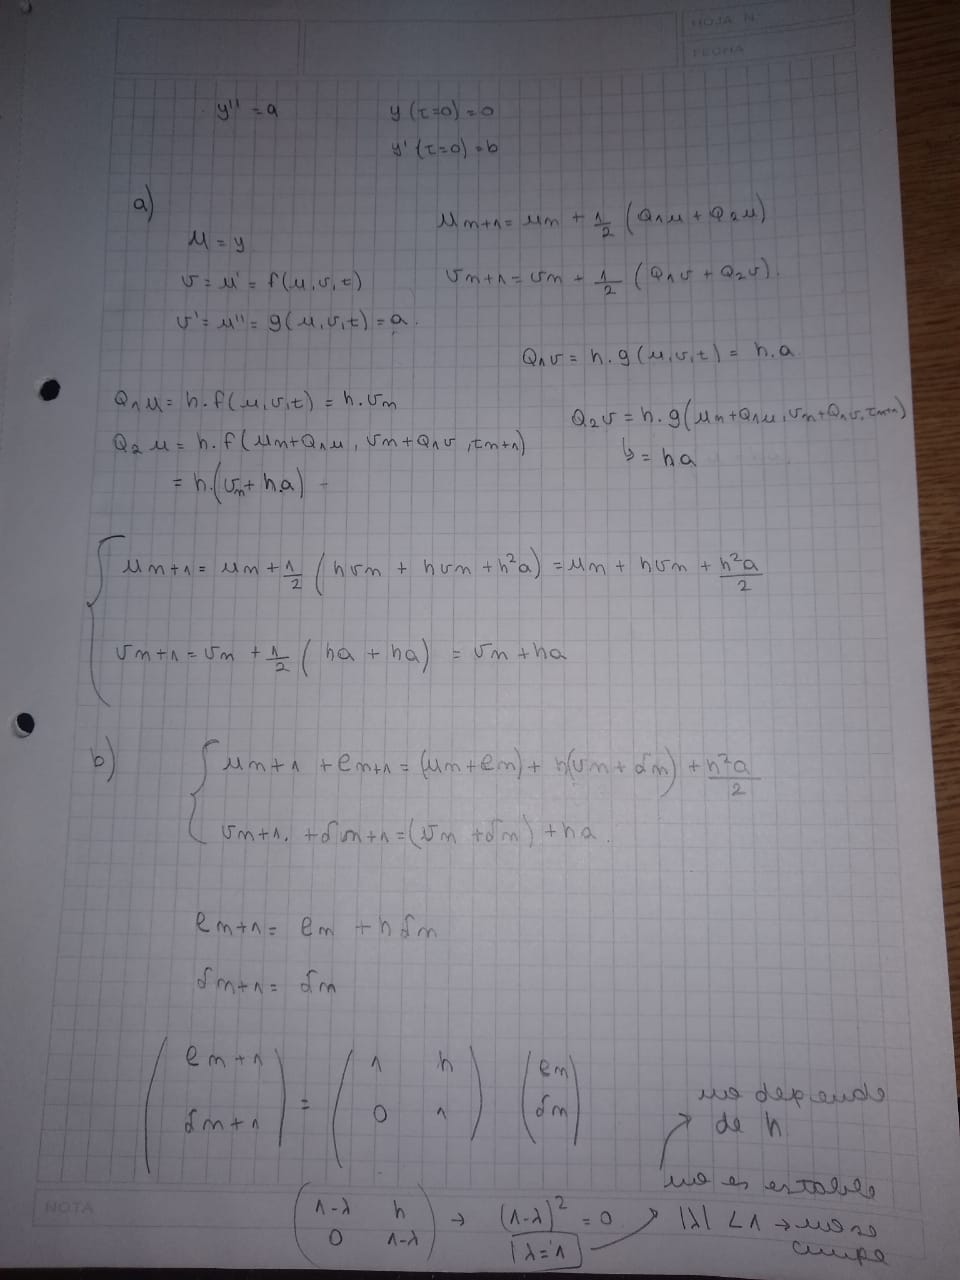 HOJA N.
FECHA
y'' = a
y (t=0) = 0
y' (t=0) = b
a)
u_{n+1} = u_n + 1/2 (Q_1u + Q_2u)
u = y
v = u' = f(u,v,t)
v_{n+1} = v_n + 1/2 (Q_1v + Q_2v).
v' = u'' = g(u,v,t) = a.
Q_1v = h.g(u,v,t) = h.a
Q_1u = h.f(u,v,t) = h.v_n
Q_2v = h.g(u_n+Q_1u, v_n+Q_1v, t_{n+1})
Q_2u = h.f(u_n+Q_1u, v_n+Q_1v, t_{n+1})
↳ = ha
= h.(v_n + h.a)
u_{n+1} = u_n + 1/2 (hv_n + hv_n + h²a) = u_n + hv_n + h²a/2
v_{n+1} = v_n + 1/2 (ha + ha) = v_n + ha
b)
u_{n+1} + e_{n+1} = (u_n + e_n) + h(v_n + δ_n) + h²a/2
v_{n+1} + δ_{n+1} = (v_n + δ_n) + ha.
e_{n+1} = e_n + hδ_n
δ_{n+1} = δ_n
(e_{n+1} δ_{n+1}) = (1 h 0 1) (e_n δ_n)
no depende
de h
no es estable
(1-λ h 0 1-λ) → (1-λ)² = 0
|λ| < 1 → no se
cumpe
|λ = 1|
NOTA